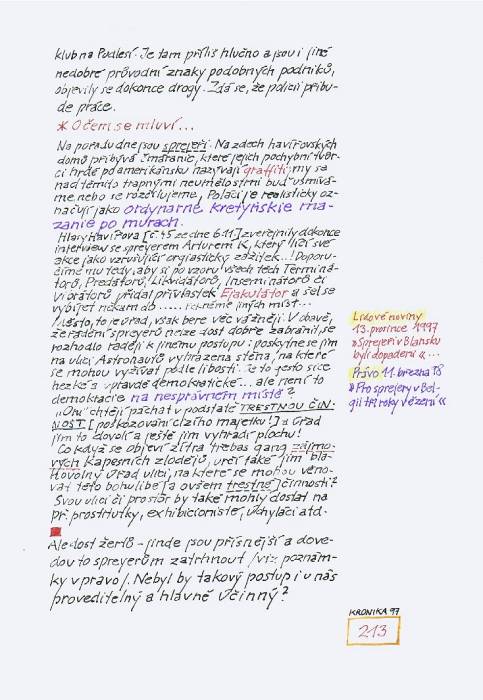 klub na Podlesí. Je tam příliš hlučno a jsou i jiné
nedobré průvodní znaky podobných podniků,
objevily se dokonce drogy. Zdá se, že policii přibu-
de práce.
* O čem se mluví...
Na pořadu dne jsou sprejeři. Na zdech havířovských
domů přibývá čmáranic, které jejich pochybní tvůr-
ci hrdě po americku nazývají graffiti; my se
nad těmito trapnými neumělostmi buď usmívá-
me, nebo se rozčilujeme, Poláci je realisticky oz-
načují jako ordynarne, kretyńskie ma-
zanie po murach.
Hlasy Havířova [č. 45 ze dne 6.11.] zveřejnily dokonce
interview se sprayerem Arturem K., který líčí své
akce jako vzrušující orgiastický zážitek...! Doporu-
číme mu tedy, aby si po vzoru všech těch Terminá-
torů, Predátorů, Likvidátorů, Inseminátorů či
Vibrátorů přidal přívlastek Ejakulátor a šel se
vybíjet někam do ..... řekněme jiných míst...
Město, to je úřad, však bere věc vážněji. V obavě,
že řádění sprejerů nelze dost dobře zabránit, se
rozhodlo raději k jinému postupu: poskytne se jim
na ulici Astronautů vyhrazená stěna, na které
se mohou vyžívat podle libosti. Je to gesto sice
hezké a vpravdě demokratické... ale není to
demokracie na nesprávném místě?
„Oni“ chtějí páchat v podstatě TRESTNOU ČIN-
NOST [poškozování cizího majetku!] a úřad
jim to dovolí a ještě jim vyhradí plochu!
Co když se objeví zítra třebas gang zájmo-
vých kapesních zlodějů, určí také jim bla-
hovolný úřad ulici, na které se mohou věno-
vat této bohulibé [a ovšem trestné] činnosti?
Svou ulici či prostor by také mohly dostat na
př. prostitutky, exhibicionisté, úchyláci atd.
Ale dost žertů – jinde jsou přísnější a dove-
dou to sprayerům zatrhnout /viz poznám-
ky vpravo/. Nebyl by takový postup i u nás
proveditelný a hlavně účinný?
Lidové noviny
13. prosince 1997
»Sprejeři v Blansku
byli dopadeni«...
Právo 11. března 98
»Pro sprejery v Bel-
gii tři roky vězení«
KRONIKA 97
213